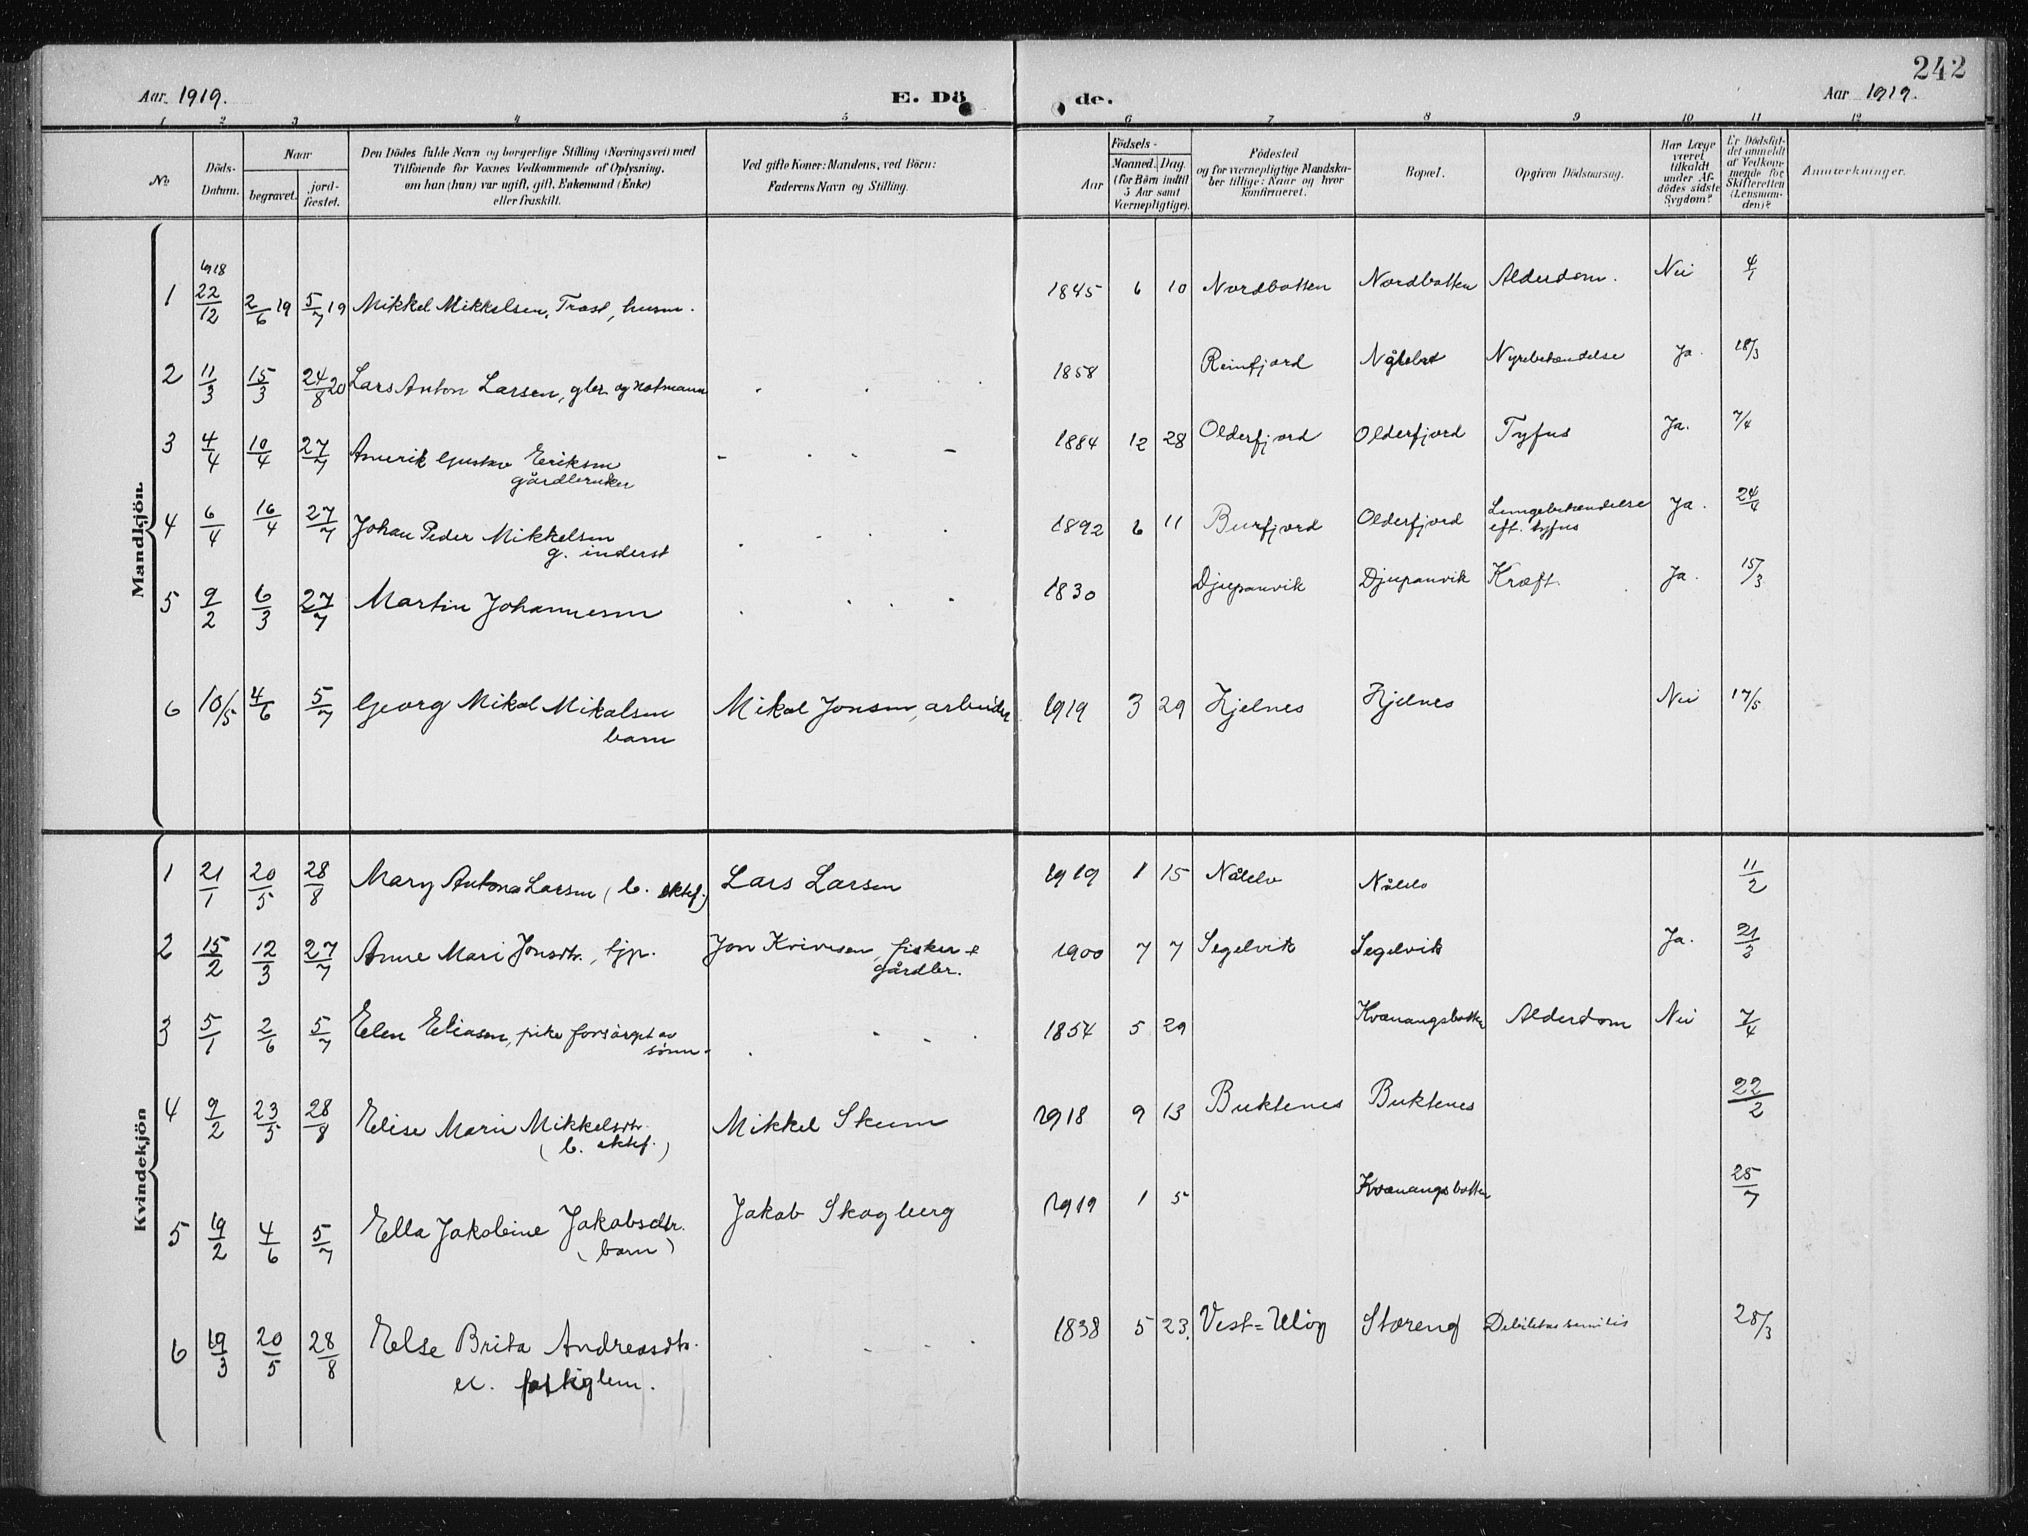 242
Aar 1919.
E. Dö
de.
Aar 1919.
1 2 3 4 5 6 7 8 9 10 11 12
No.
Döds-
Datum.
Naar
begravet.
jord-
fæstet.
Den Dödes fulde Navn og borgerlige Stilling (Næringsvei) med
Tilföiende for Voxnes Vedkommende af Oplysning,
om han (hun) var ugift, gift, Enkemand (Enke)
eller fraskilt.
Ved gifte Koner: Mandens, ved Börn:
Faderens Navn og Stilling.
Födsels-
Aar
Maaned.
Dag.
(for Börn indtil
5 Aar samt
Værnepligtige).
Födested
og for værnepligtige Mandska-
ber tillige: Naar og hvor
konfirmeret.
Bopæl.
Opgiven Dödsaarsag.
Har Læge
været
tilkaldt
under Af-
dödes sidste
Sygdom?
Er Dödsfal-
det anmeldt
af Vedkom-
mende for
Skifteretten
(Lensman-
den)?
Anmærkninger.
Mandkjön.
1918
1 22/12 2/6 19 5/7 19 Mikkel Mikkelsen, Trast, husm. 1845 6 10 Nordbotten Nordbotten Alderdom. Nei 4/1
2 11/3 15/3 24/8 20 Lars Anton Larsen, gbr. og notmann 1858 Reinfjord Nyrebetændelse Ja. 18/3
3 4/4 10/4 27/7 Amerik Gustav Eriksen 1884 12 28 Olderfjord Olderfjord Tyfus Ja. 7/4
gårdbruker
4 6/4 16/4 27/7 Johan Peder Mikkelsen 1892 6 11 Burfjord Olderfjord Lungebetændelse Ja. 24/4
g. inderst
eft. tyfus
5 9/2 6/3 27/7 Martin Johannesen 1830 Djupanvik Djupanvik Kræft. Ja. 15/3
6 10/5 4/6 5/7 Georg Mikal Mikalsen Mikal Jonsen, arbeider 1919 3 29 Kjelnes Kjelnes Nei 17/5
barn
Kvindekjön
1 21/1 20/5 28/8 Mary Antona Larsen (b. ektef.) Lars Larsen 1919 1 15 Nålelv Nålelv 11/2
2 15/2 12/3 27/7 Anne Mari Jonsdtr., tjp. Jon Krivesen, fisker + 1900 7 7 Segelvik Segelvik Ja. 21/3
gårdbr.
3 5/1 2/6 5/7 Elen Eliasen, pike forsörget av 1854 5 29 Kvænangsbotten Alderdom Nei 7/4
sönn.
4 9/2 23/5 28/8 Elise Marie Mikkelsdtr. Mikkel Skum 1918 9 13 Buktenes Buktenes 22/2
(b. ektef.)
5 19/2 4/6 5/7 Ella Jakobine Jakobsdtr. Jakob Skogberg 1919 1 5 Kvænangsbotten 25/7
(barn)
6 19/3 20/5 28/8 Else Brita Andreasdtr. 1838 5 23. Vest=Ulöy Storeng Debilitas senilis 28/3